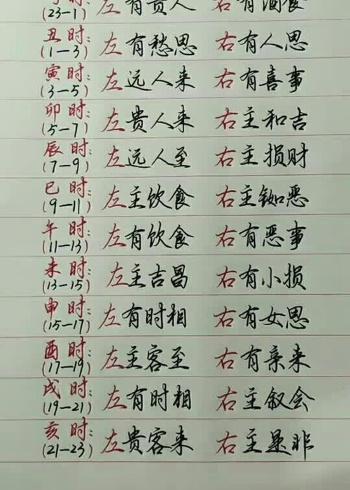 (23-1) 左有贵人 右有酒食
丑时: (1-3) 左有愁思 右有人思
寅时: (3-5) 左远人来 右有喜事
卯时: (5-7) 左贵人来 右主和吉
辰时: (7-9) 左远人至 右主损财
巳时: (9-11) 左主饮食 右主
午时: (11-13) 左有饮食 右有恶事
未时: (13-15) 左主吉昌 右有小损
申时: (15-17) 左有时相 右有女恩
酉时: (17-19) 左主客至 右有亲来
戌时: (19-21) 左有时相 右主叙会
亥时: (21-23) 左贵客来 右主是非